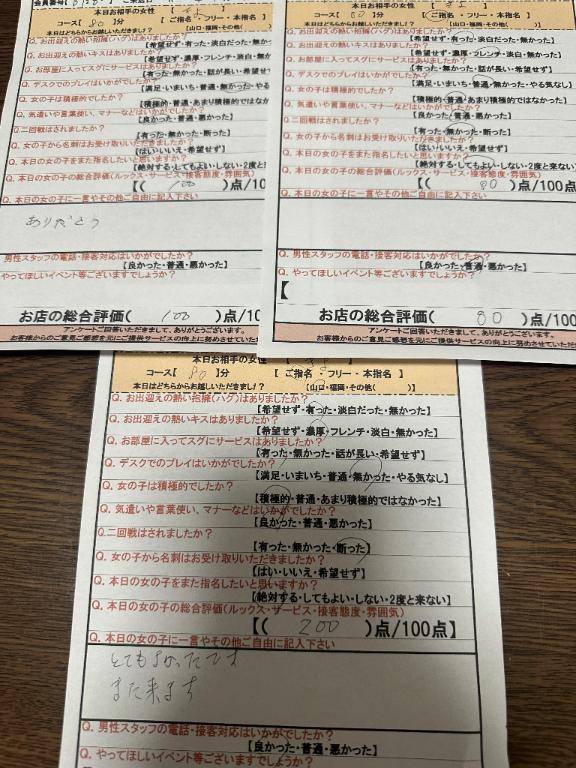 本日お相手の女性
コース[ 80 ]分 【 ご指名・フリー・本指名
本日はどちらからお越しいただきまし!? [山口・福岡・その他(
Q. お出迎えの熱い抱擁(ハグ)はありましたか?
【希望せず・有った・淡白だった・無か
Q. お出迎えの熱いキスはありましたか?
【希望せず・濃厚・フレンチ・淡白・無
Q. お部屋に入ってスグにサービスはありましたか?
【有った・無かった・話が長い・希望せ
Q. デスクでのプレイはいかがでしたか?
【満足・いまいち・普通・無かった・やる
Q. 女の子は積極的でしたか?
【積極的・普通・あまり積極的ではなか
Q. 気遣いや言葉使い、マナーなどはいかがでしたか?
【良かった・普通・悪かった】
Q.二回戦はされましたか?
【有った・無かった・断った】
Q. 女の子から名刺はお受け取りいただきましたか?
【はい・いいえ・希望せず】
Q. 本日の女の子をまた指名したいと思いますか?
【絶対する・してもよい・しない・2度と
Q. 本日の女の子の総合評価(ルックス・サービス・接客態度・雰囲気)
【( 100 )点/10
Q. 本日の女の子に一言やその他ご自由に記入下さい
ありがとう
男性スタッフの電話・接客対応はいかがでしたか?
【良かった・普通・悪かった】
やってほしいイベント等ございますでしょうか?
お店の総合評価( 100 )点/10
アンケートご回答いただきまして、ありがとうございます。
お客様からのご意見ご感想を元にご提供サービスの向上に努めさせていた
本日お相手の女性
コース[ 60 ]分 【 ご指名・フリー・本指名
本日はどちらからお越しいただきまし!? [山口・福岡・その他(
Q. お出迎えの熱い抱擁(ハグ)はありましたか?
【希望せず・有った・淡白だった・無かった】
Q. お出迎えの熱いキスはありましたか?
【希望せず・濃厚・フレンチ・淡白・無かった】
Q. お部屋に入ってスグにサービスはありましたか?
【有った・無かった・話が長い・希望せず】
Q. デスクでのプレイはいかがでしたか?
【満足・いまいち・普通・無かった・やる気なし】
Q. 女の子は積極的でしたか?
【積極的・普通・あまり積極的ではなかった】
Q. 気遣いや言葉使い、マナーなどはいかがでしたか?
【良かった・普通・悪かった】
Q.二回戦はされましたか?
【有った・無かった・断った】
Q. 女の子から名刺はお受け取りいただきましたか?
【はい・いいえ・希望せず】
Q. 本日の女の子をまた指名したいと思いますか?
【絶対する・してもよい・しない・2度と来ない】
Q. 本日の女の子の総合評価(ルックス・サービス・接客態度・雰囲気)
【( 80 )点/100点
Q. 本日の女の子に一言やその他ご自由に記入下さい
Q. 男性スタッフの電話・接客対応はいかがでしたか?
【良かった・普通・悪かった】
Q. やってほしいイベント等ございますでしょうか?
【
お店の総合評価( 80 )点/100
アンケートご回答いただきまして、ありがとうございます。
お客様からのご意見ご感想を元にご提供サービスの向上に努めさせていただ
本日お相手の女性
コース[ 80 ]分 【 ご指名・フリー・本指名】
本日はどちらからお越しいただきまし!? [山口・福岡・その他( )]
Q. お出迎えの熱い抱擁(ハグ)はありましたか?
【希望せず・有った・淡白だった・無かった】
Q. お出迎えの熱いキスはありましたか?
【希望せず・濃厚・フレンチ・淡白・無かった】
Q. お部屋に入ってスグにサービスはありましたか?
【有った・無かった・話が長い・希望せず】
Q. デスクでのプレイはいかがでしたか?
【満足・いまいち・普通・無かった・やる気なし】
Q. 女の子は積極的でしたか?
【積極的・普通・あまり積極的ではなかった】
Q. 気遣いや言葉使い、マナーなどはいかがでしたか?
【良かった・普通・悪かった】
Q.二回戦はされましたか?
【有った・無かった・断った】
Q. 女の子から名刺はお受け取りいただきましたか?
【はい・いいえ・希望せず】
Q. 本日の女の子をまた指名したいと思いますか?
【絶対する・してもよい・しない・2度と来ない】
Q. 本日の女の子の総合評価(ルックス・サービス・接客態度・雰囲気)
【( 200 )点/100点】
Q. 本日の女の子に一言やその他ご自由に記入下さい
とてもよかったです
また来ます
Q. 男性スタッフの電話・接客対応はいかがでしたか?
【良かった・普通・悪かった】
Q. やってほしいイベント等ございますでしょうか?